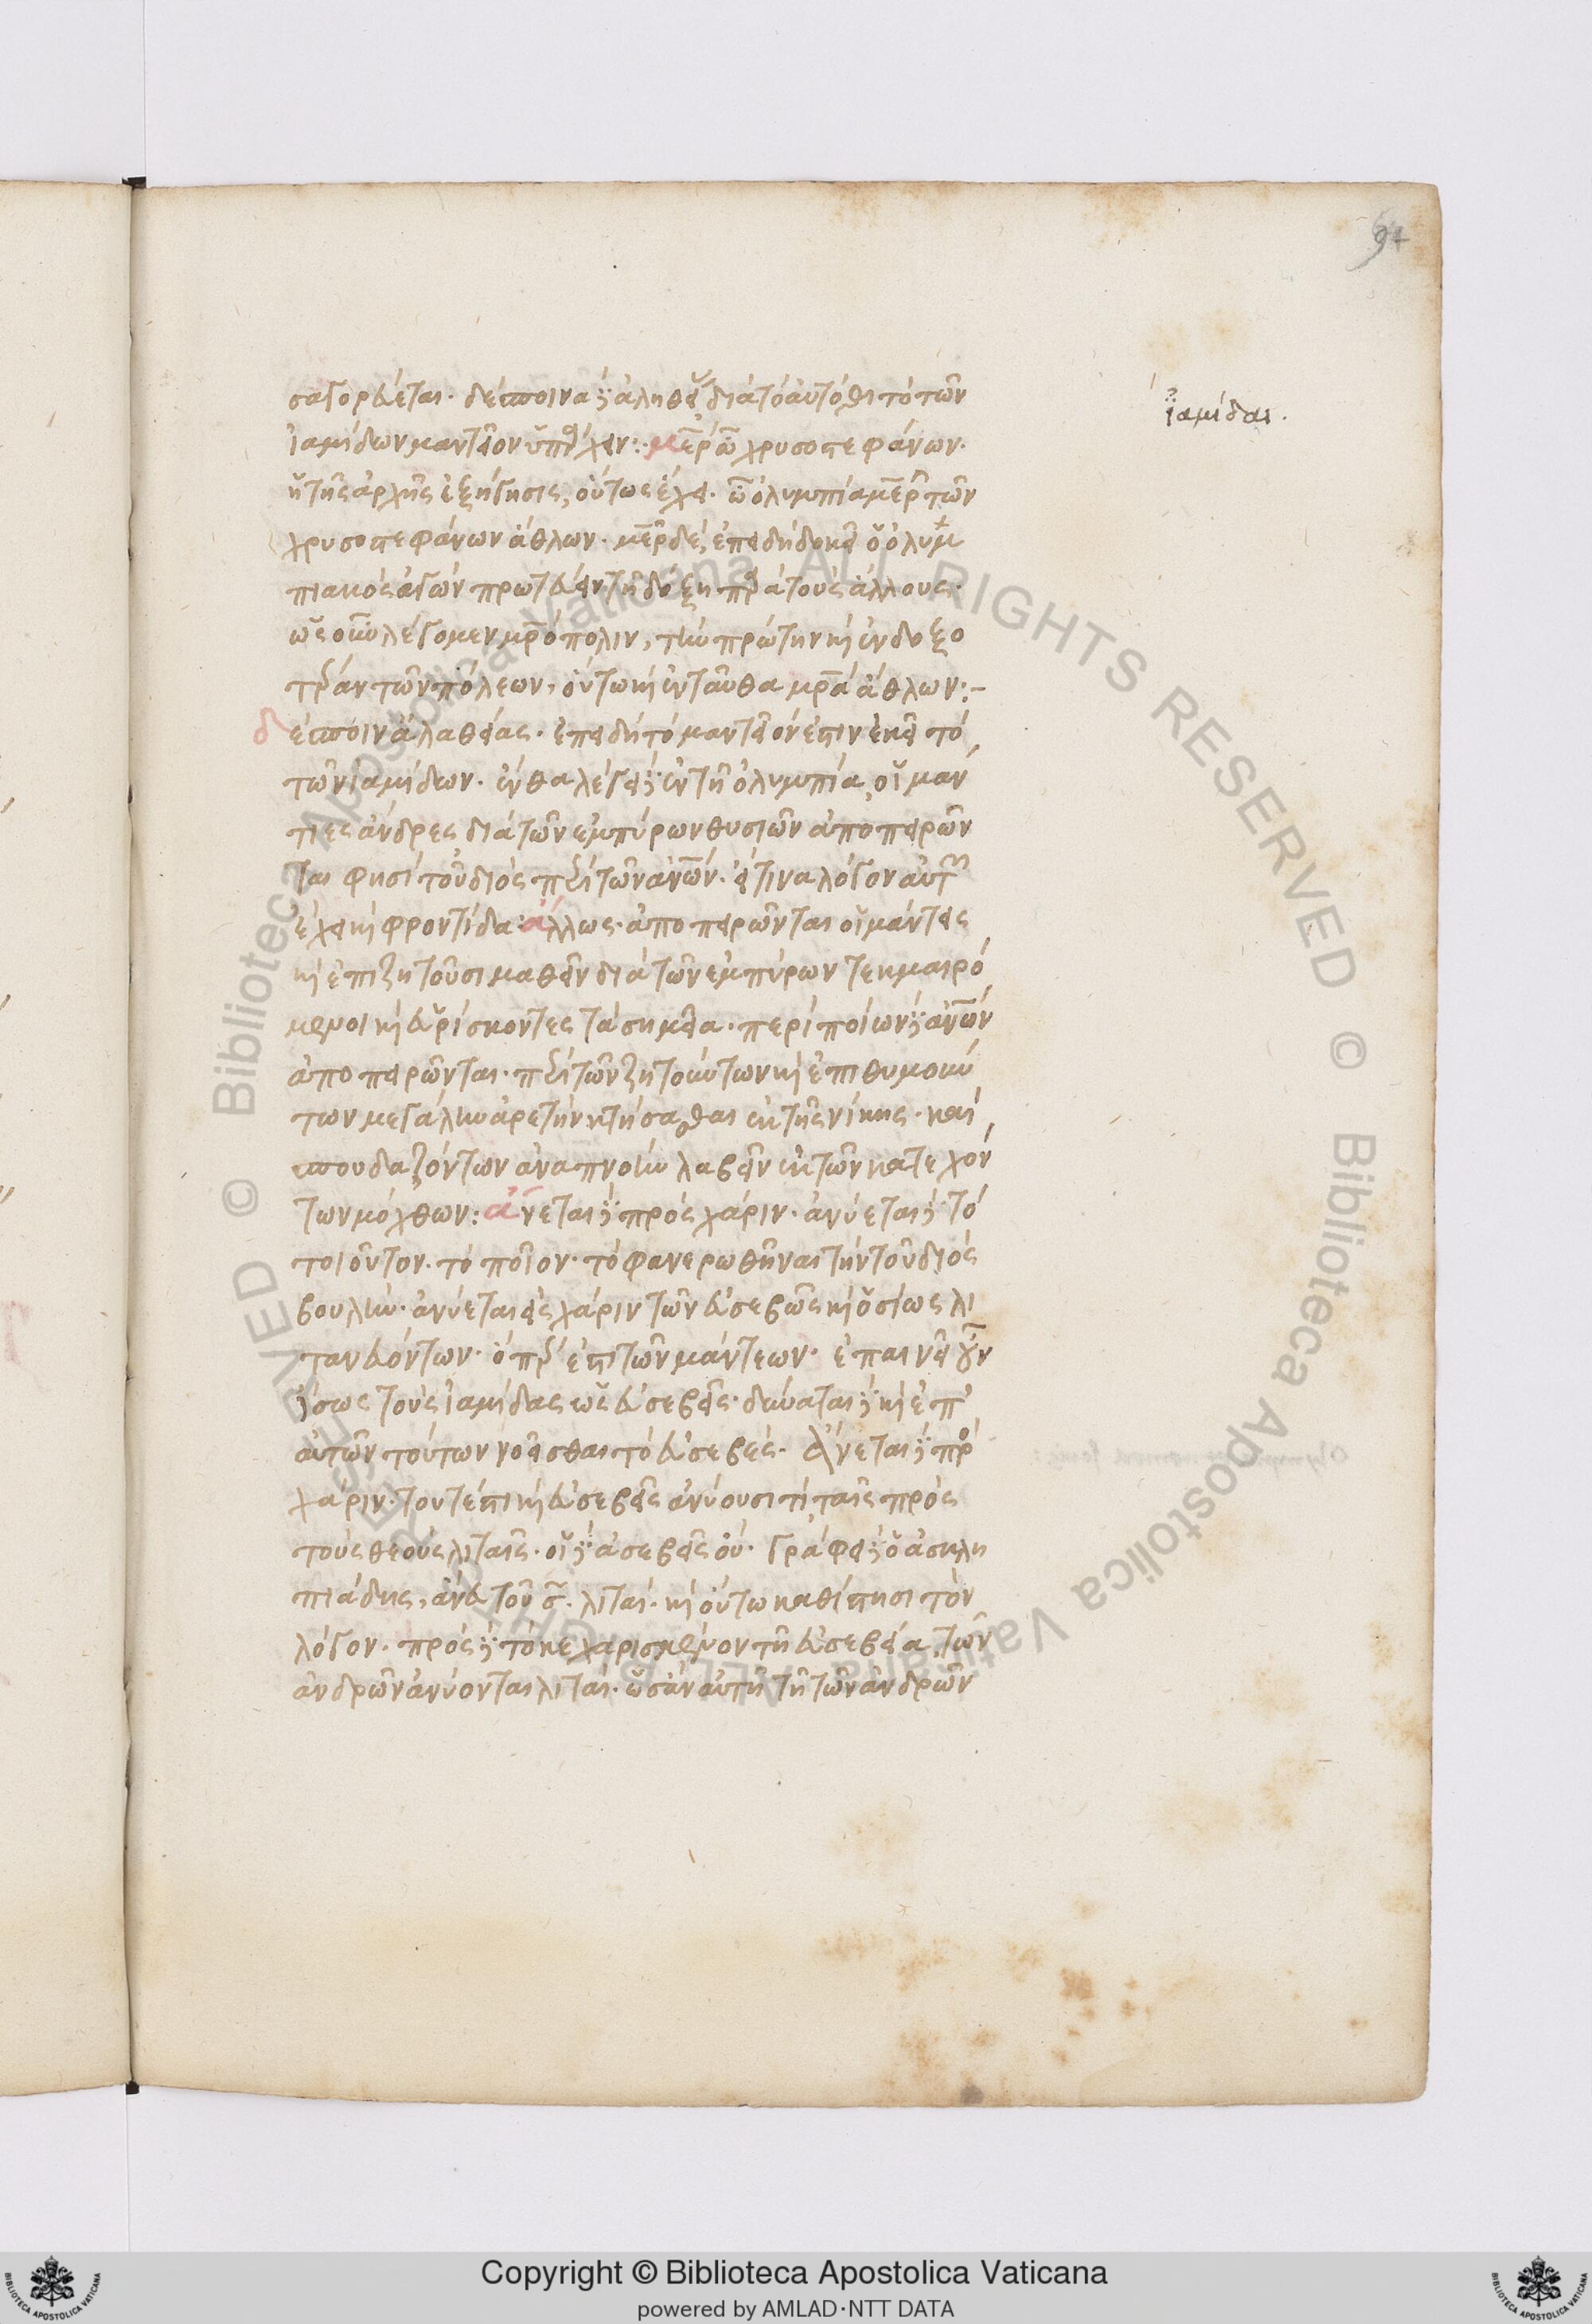 94
ἰαμίδαι.
σαγορεύεται. δέσποινα δὲ ἀληθείας διὰ τὸ αὐτόθι τὸ τῶν
ἰαμίδων μαντεῖον ὑπάρχειν: μῆτερ ὦ χρυσοστεφάνων.
ἡ τῆς ἀρχῆς ἐξήγησις, οὕτως ἔχει. ὦ ὀλυμπία μῆτερ τῶν
χρυσοστεφάνων ἄθλων. μῆτερ δὲ, ἐπειδὴ δοκεῖ ὁ ὀλυμ
πιακὸς ἀγὼν πρωτεύειν τῇ δόξῃ παρὰ τοὺς ἄλλους.
ὡς οὖν λέγομεν μητρόπολιν, τὴν πρώτην καὶ ἐνδοξο
τέραν τῶν πόλεων, οὕτω καὶ ἐνταῦθα μητέρα ἄθλων:-
δέσποιν ἀλαθείας. ἐπειδὴ τὸ μαντεῖόν ἐστιν ἐκεῖ τὸ
τῶν ἰαμίδων. ἔνθα λέγει δὲ ἐν τῇ ὀλυμπίᾳ, οἱ μάν
τιες ἄνδρες διὰ τῶν ἐμπύρων θυσιῶν ἀποπειρῶν
ται φησὶ τοῦ διὸς περὶ τῶν ἀνθρώπων. εἴ τινα λόγον αὐτῶν
ἔχει καὶ φροντίδα: ἄλλως. ἀποπειρῶνται οἱ μάντεις
καὶ ἐπιζητοῦσι μαθεῖν διὰ τῶν ἐμπύρων τεκμαιρό
μενοι καὶ εὑρίσκοντες τὰ σημεῖα. περὶ ποίων δὲ ἀνθρώπων
ἀποπειρῶνται. περὶ τῶν ζητούντων καὶ ἐπιθυμούν
των μεγάλην ἀρετὴν κτήσασθαι ἐκ τῆς νίκης. καὶ
σπουδαζόντων ἀναπνοὴν λαβεῖν ἐκ τῶν κατεχόν
των μόχθων: ἄνεται δὲ πρὸς χάριν. ἀνύεται δὲ τὸ
τοιοῦτον. τὸ ποῖον. τὸ φανερωθῆναι τὴν τοῦ διὸς
βουλήν. ἀνύεται εἰς χάριν τῶν εὐσεβῶς καὶ ὁσίως λι
τανευόντων. ὅπερ ἐστὶ τῶν μάντεων. ἐπαινεῖ γοῦν
ἴσως τοὺς ἰαμίδας ὡς εὐσεβεῖς. δύναται δὲ καὶ ἐπ
αὐτῶν τούτων νοεῖσθαι τὸ εὐσεβές. ἄνεται δὲ πρὸς
χάριν. τουτέστι καὶ εὐσεβεῖς ἀνύουσί τι ταῖς πρὸς
τοὺς θεοὺς λιταῖς. οἱ δὲ ἀσεβεῖς οὔ. γράφει δὲ ὁ ἀσκλη
πιάδης, ἄνευ τοῦ σ. λιταί. καὶ οὕτω καθίστησι τὸν
λόγον. πρὸς δὲ τὸ κεχαρισμένον τῇ εὐσεβείᾳ τῶν
ἀνδρῶν ἀνύονται λιταί. ὡσὰν αὐτῇ τῇ τῶν ἀνδρῶν
Copyright © Biblioteca Apostolica Vaticana
powered by AMLAD·NTT DATA